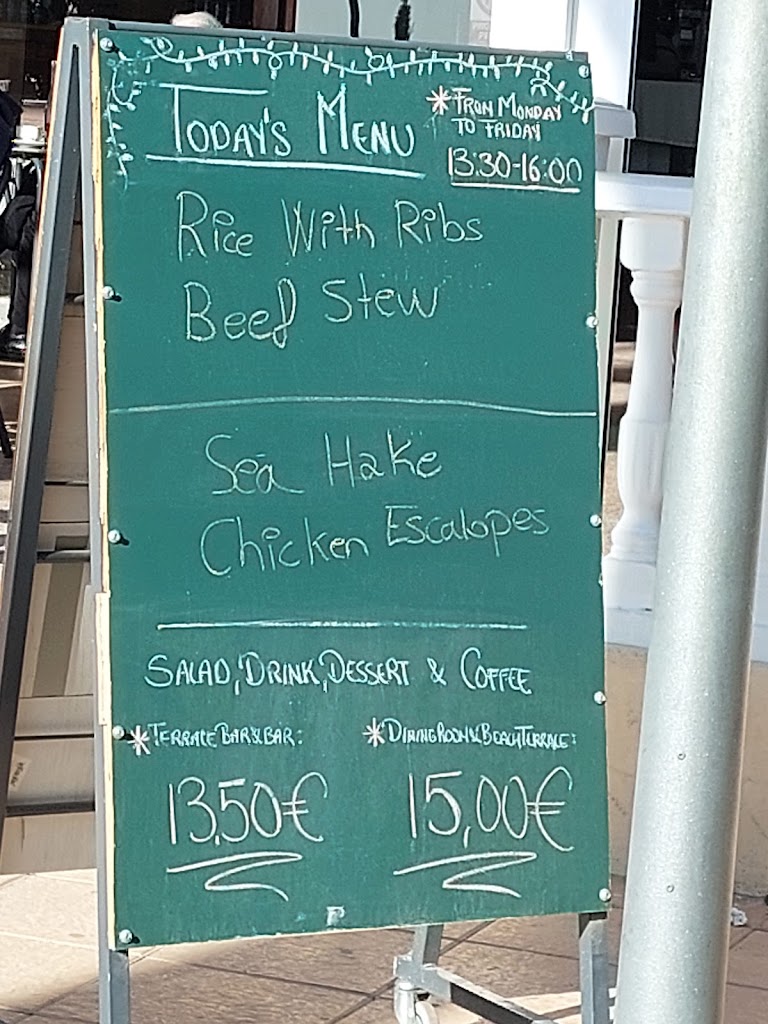 Today's Menu
*From Monday
to Friday
13:30-16:00
Rice With Ribs
Beef Stew
Sea Hake
Chicken Escalopes
Salad, Drink, Dessert & Coffee
*Terrace Bar & Bar:
13,50€
*Dining Room & Beach Terrace:
15,00€